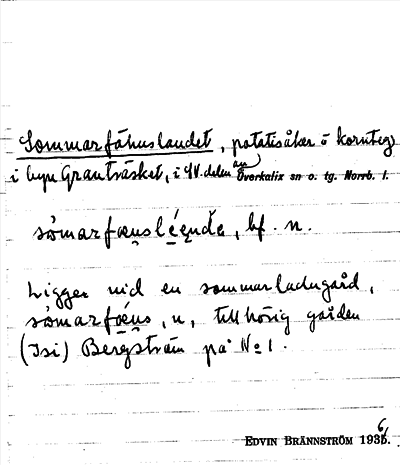 Sommarfähuslandet, potatisåker o kornteg
i byn Granträsket, i SV. delen av Överkalix sn o. tg. Norrb. l.
sòmarfæ̀usléènde, bf. n.
Ligger vid en sommarladugård,
sòmarfæus, n, tillhörig gården
(Isi) Bergström på No 1.
EDVIN BRÄNNSTRÖM 1936.